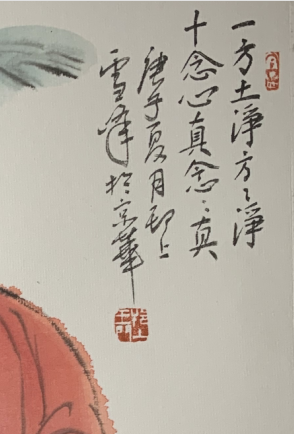 一方土淨方〻淨
十念心真念〻真
庚子夏月邨上
雪峰於京華